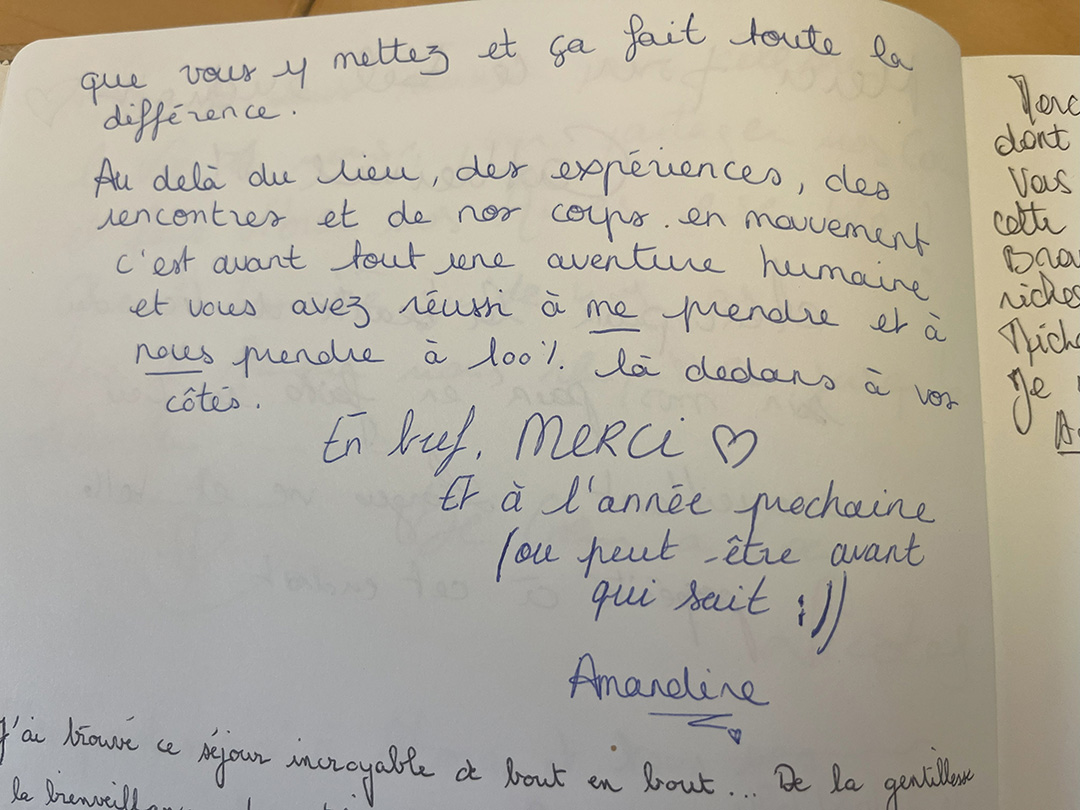 que vous y mettez et ça fait toute la
différence.
Au delà du lieu, des expériences, des
rencontres et de nos corps en mouvement
c'est avant tout une aventure humaine
et vous avez réussi à me prendre et à
nous prendre à 100% là dedans à vos
côtés.
En bref, MERCI ♡
Et à l'année prochaine
(ou peut-être avant
qui sait :))
Amandine
J'ai trouvé ce séjour incroyable de bout en bout... De la gentillesse
la
dont
Vous
cette
Je